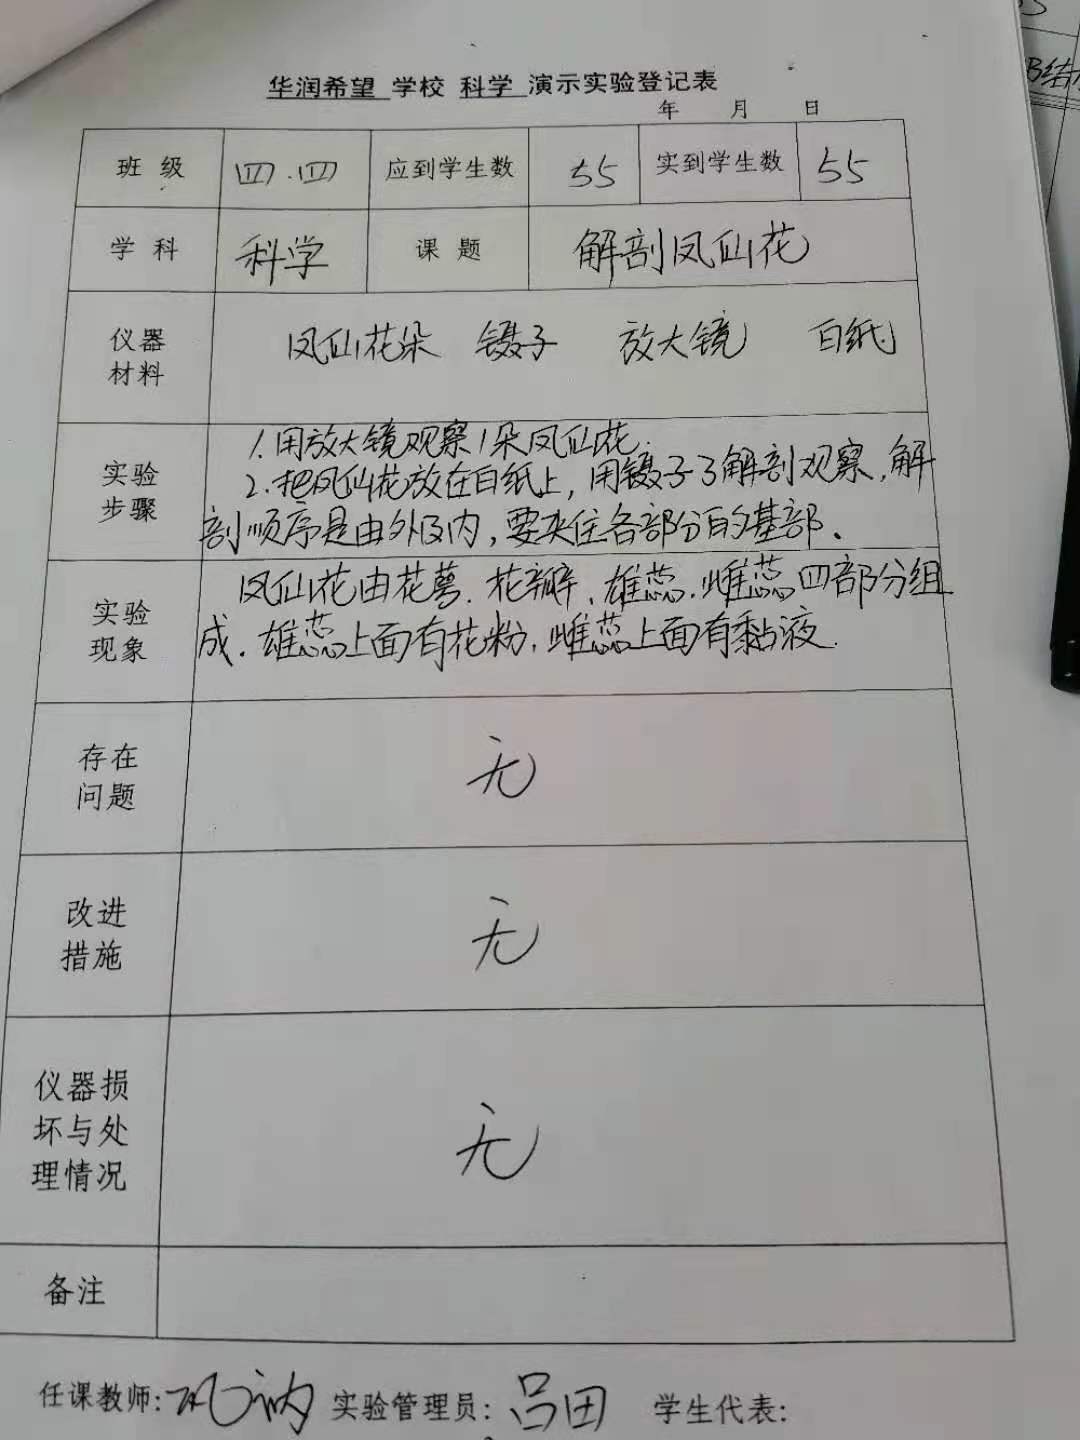 华润希望 学校 科学 演示实验登记表
年 月 日
班级 四.四 应到学生数 55 实到学生数 55
学科 科学 课题 解剖凤仙花
仪器材料 凤仙花朵 镊子 放大镜 白纸
实验步骤
1.用放大镜观察1朵凤仙花.
2.把凤仙花放在白纸上,用镊子了解剖观察,解
剖顺序是由外及内,要夹住各部分的基部.
实验现象
凤仙花由花萼.花瓣、雄蕊.雌蕊四部分组
成.雄蕊上面有花粉,雌蕊上面有黏液.
存在问题 无
改进措施 无
仪器损坏与处理情况 无
备注
任课教师: 实验管理员:吕田 学生代表: